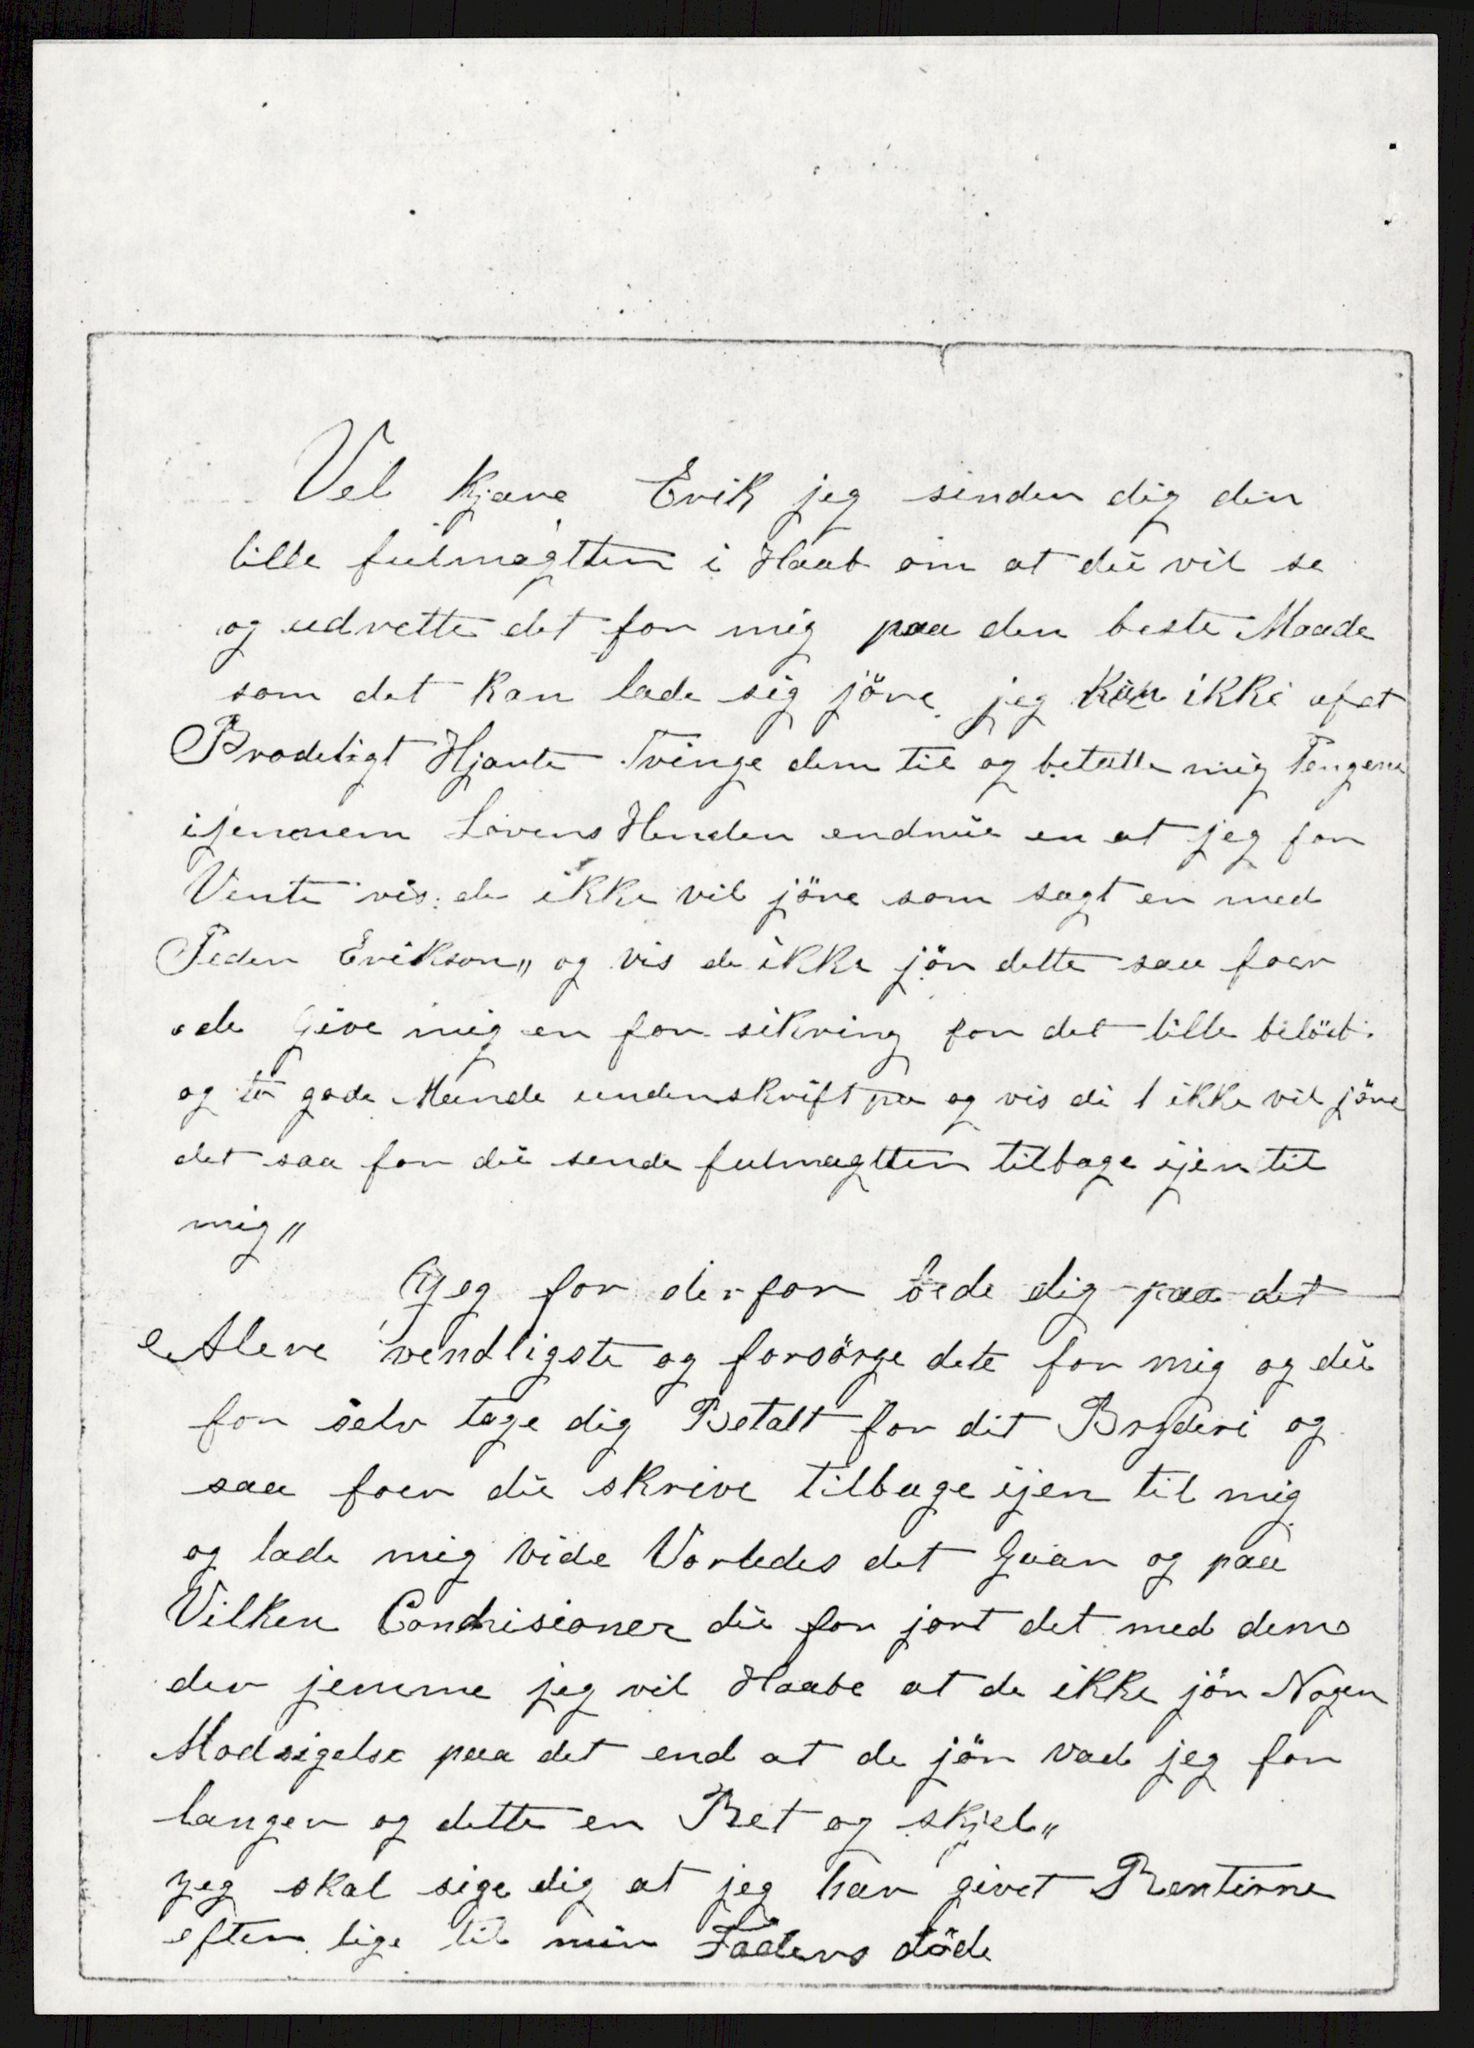 Vel kjære Erik jeg sender dig den
lille fulmagtten i Haab om at du vil se
og udrette det for mig paa den beste Maade
som det kan lade sig jöre jeg kan ikke afet
Brodeligt Hjarte Tvinge dem til og betalle mig Pengene
ijennem Lovens Hender endnu en at jeg for
Vente vis de ikke vil jöre som sagt er med
Peder Erikson„ og vis de ikke jör dette saa faer
de Give mig en for sikring for det lille belöb
og to gode Mands underskrift paa og vis di ikke vil jöre
det saa for du sende fulmagtten tilbage ijen til
mig„
Jeg for derfor bede dig paa det
Alere vendligste og forsörge dete for mig og du
for selv tage dig Betalt for dit Bryderi og
saa faer du skrive tilbage ijen til mig
og lade mig vide Vorledes det Gaar og paa
Vilken Condisioner du for jort det med dem
der jemme jeg vil Haabe at de ikke jör Nogen
Modsigelse paa det end at de jör vad jeg for
langer og dette er Ret og skjel„
Jeg skal sige dig at jeg har givet Renterne
efter lige til min Faders döde